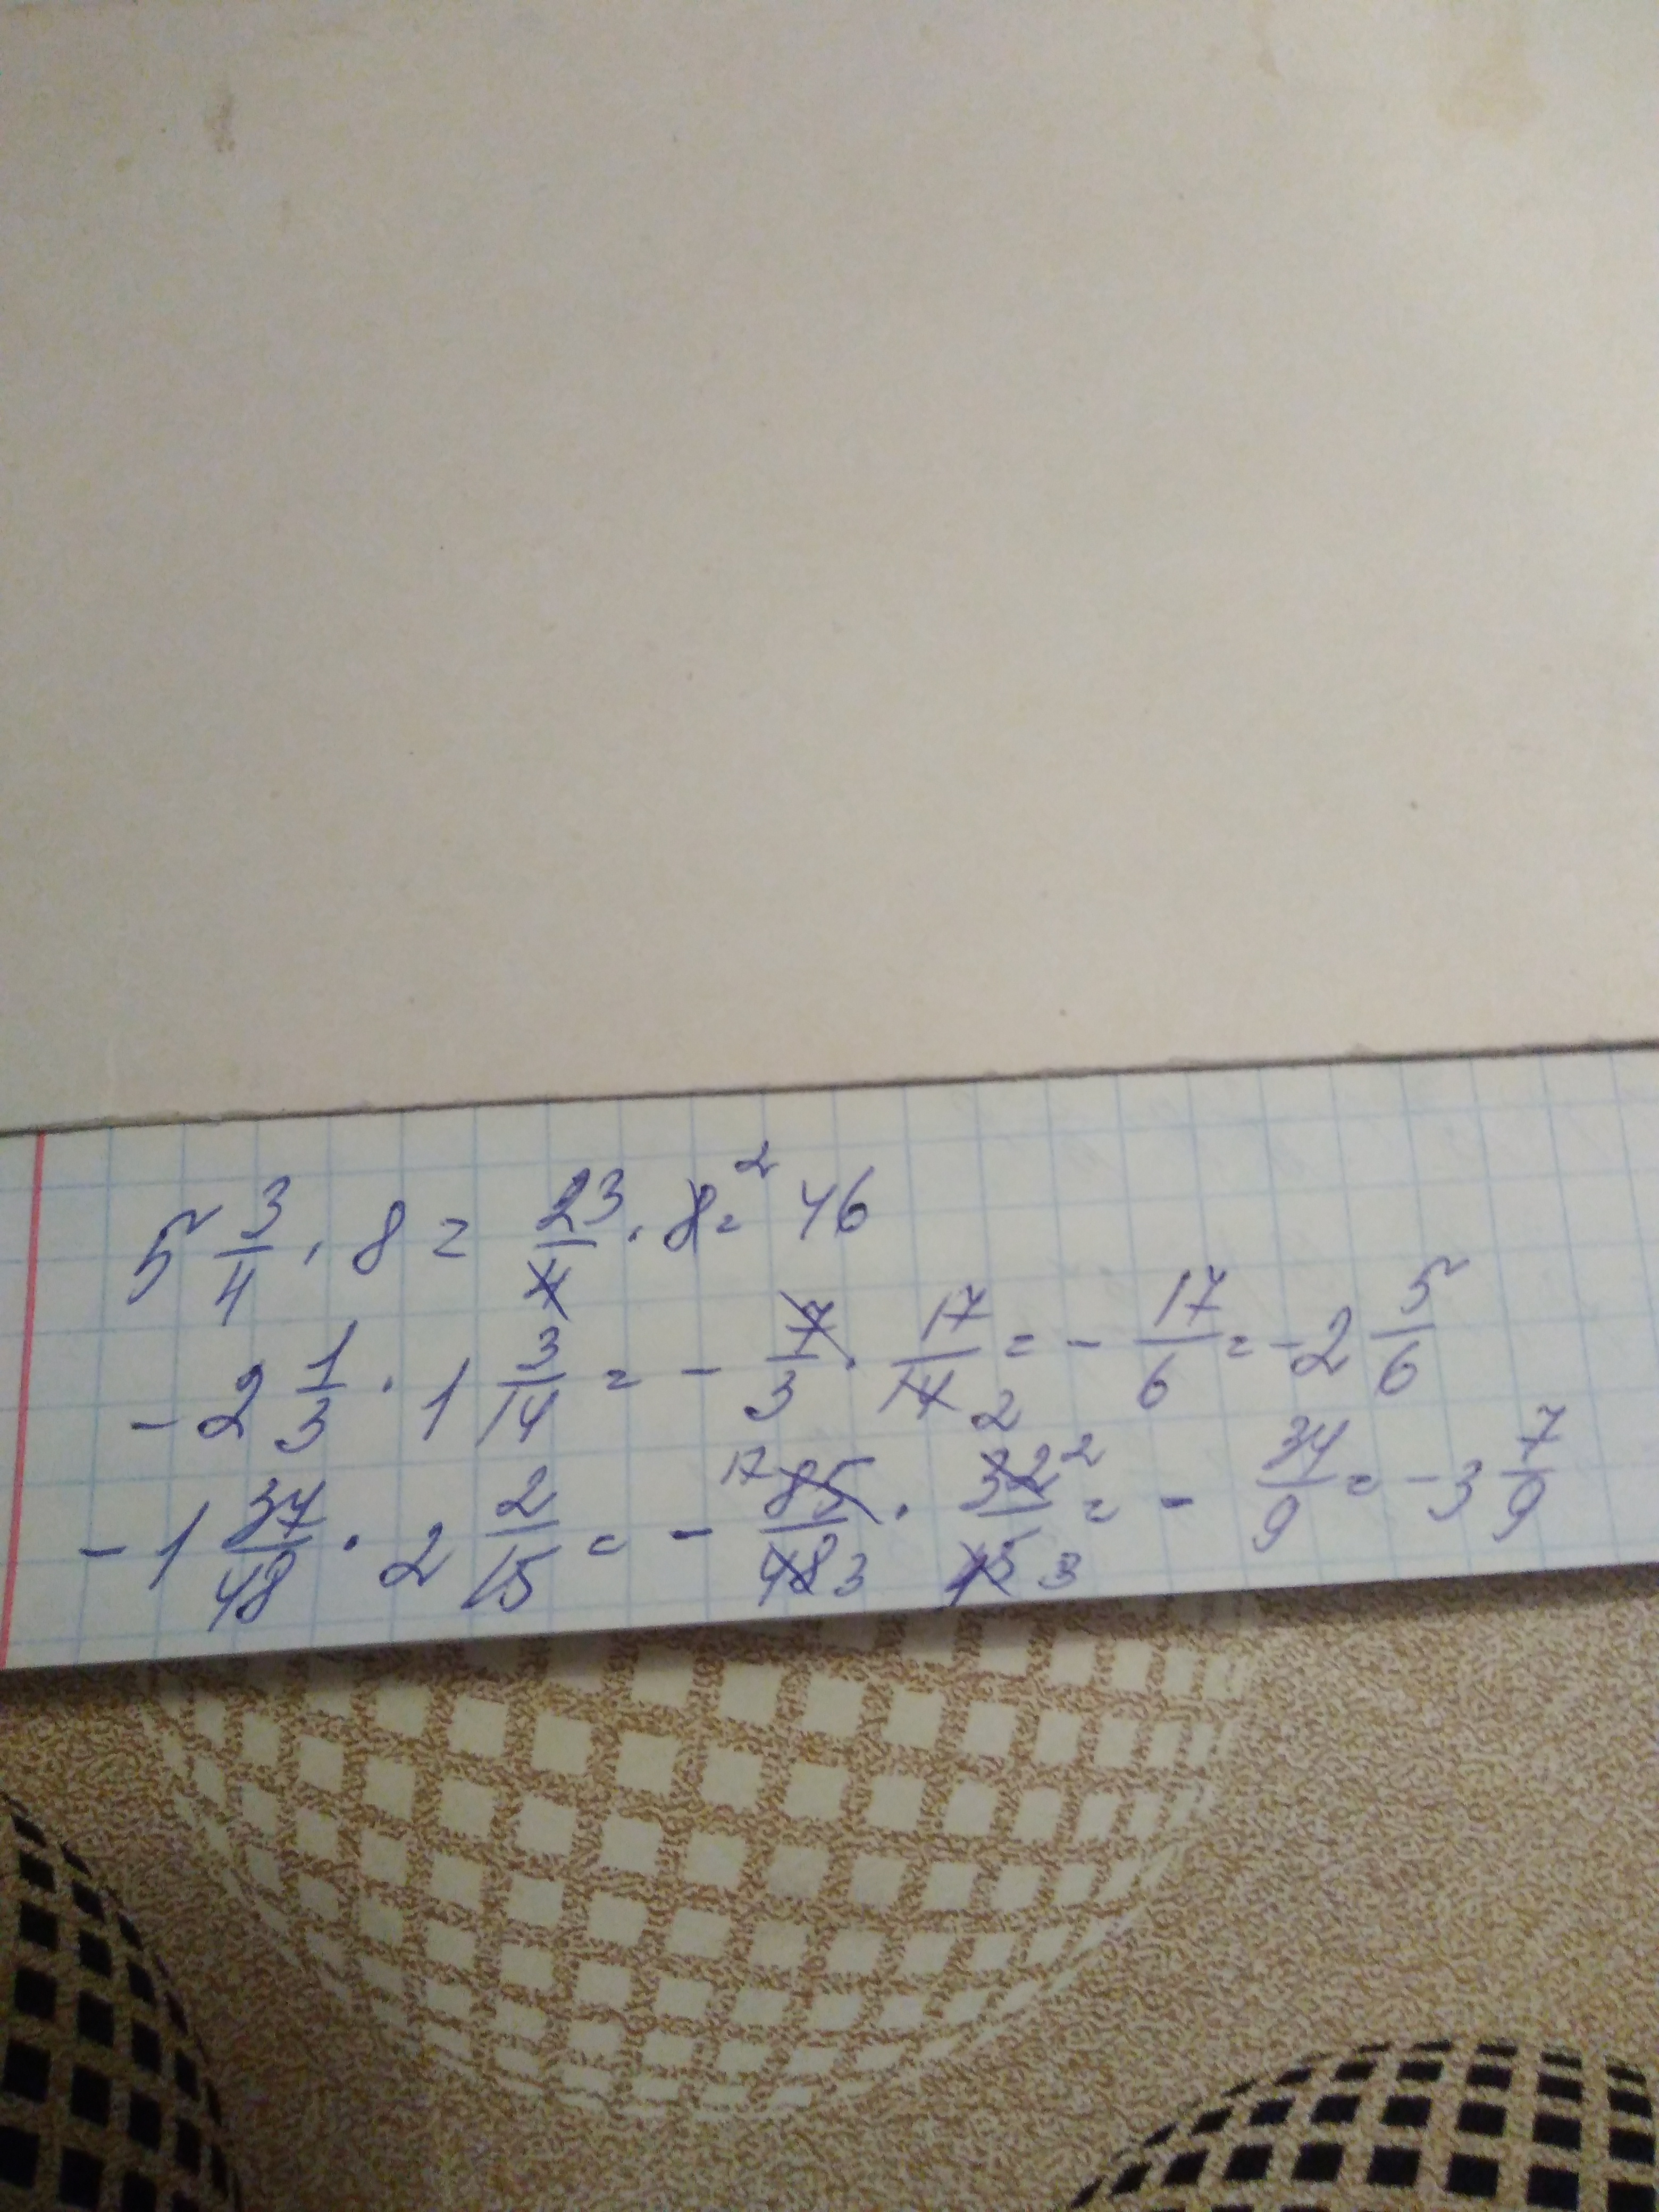 5 3/4 · 8 = 23/4 · 8 = 2 46
- 2 1/3 · 1 3/14 = - 7/3 · 17/14 2 = - 17/6 = - 2 5/6
- 1 37/48 · 2 2/15 = - 17 85/48 3 · 32 2/15 3 = - 34/9 = - 3 7/9